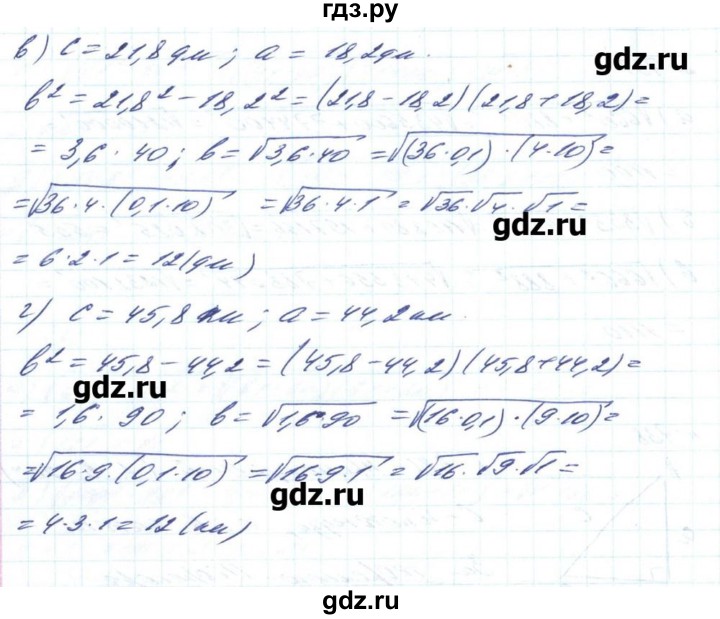 гдз.ру
в) c = 21,8 дм ; a = 18,2 дм.
gdz.ru
b² = 21,8² − 18,2² = (21,8 − 18,2)(21,8 + 18,2) =
= 3,6 · 40 ; b = √3,6·40 = √(36·0,1)·(4·10) =
= √36·4·(0,1·10) = √36·4·1 = √36·√4·√1 =
gdz.ru
= 6·2·1 = 12 (дм)
г) c = 45,8 км ; a = 44,2 км.
b² = 45,8 − 44,2 = (45,8 − 44,2)(45,8 + 44,2) =
gdz.ru
= 1,6 · 90 ; b = √1,6·90 = √(16·0,1)·(9·10) =
= √16·9·(0,1·10) = √16·9·1 = √16·√9·√1 =
gdz.ru
= 4·3·1 = 12 (км)
gdz.ru